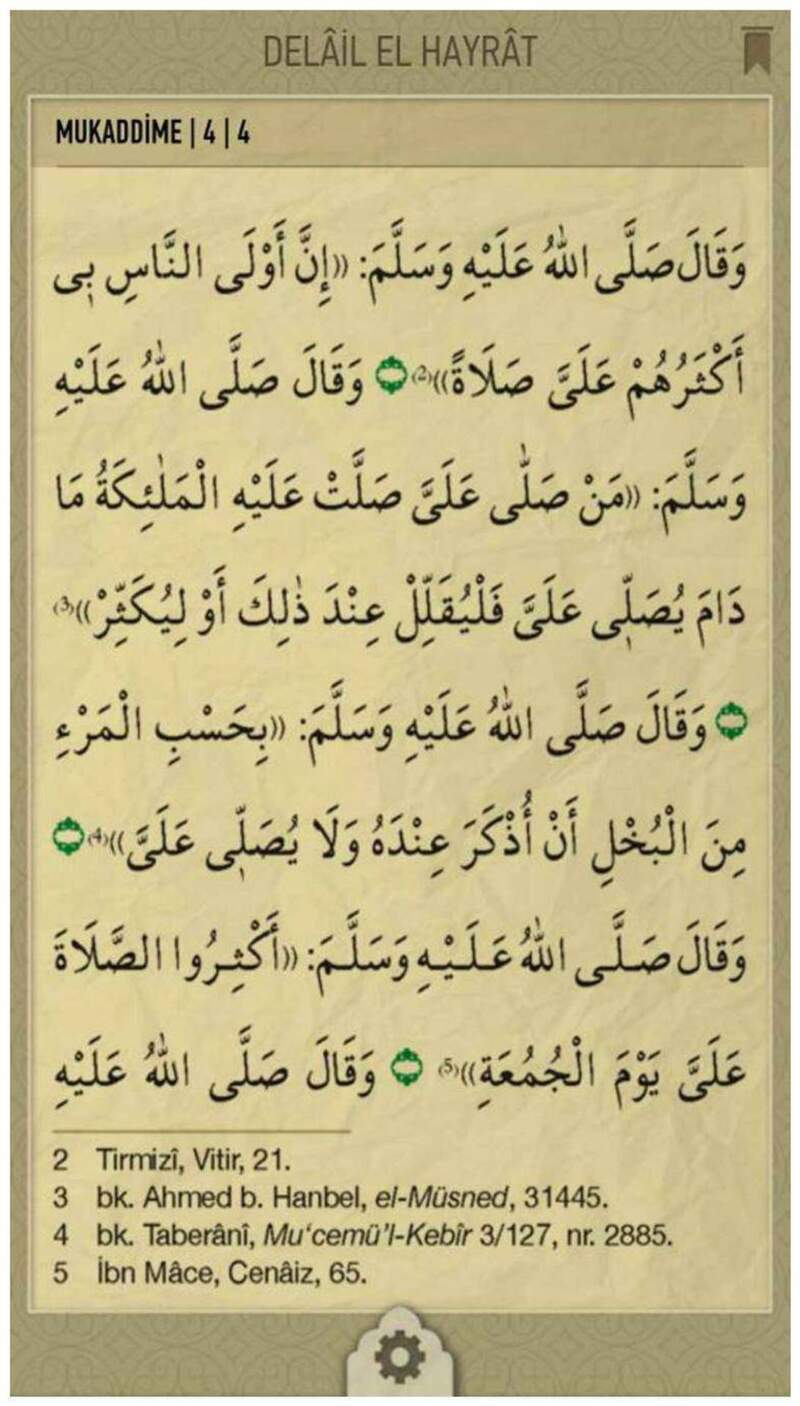 DELÂİL EL HAYRÂT
MUKADDİME | 4 | 4
وَقَالَ صَلَّى اللهُ عَلَيْهِ وَسَلَّمَ: ((إِنَّ أَوْلَى النَّاسِ بِى
أَكْثَرُهُمْ عَلَىَّ صَلَاةً))(2) وَقَالَ صَلَّى اللهُ عَلَيْهِ
وَسَلَّمَ: ((مَنْ صَلّٰى عَلَىَّ صَلَّتْ عَلَيْهِ الْمَلٰئِكَةُ مَا
دَامَ يُصَلِّى عَلَىَّ فَلْيُقَلِّلْ عِنْدَ ذٰلِكَ أَوْ لِيُكَثِّرْ))(3)
وَقَالَ صَلَّى اللهُ عَلَيْهِ وَسَلَّمَ: ((بِحَسْبِ الْمَرْءِ
مِنَ الْبُخْلِ أَنْ أُذْكَرَ عِنْدَهُ وَلَا يُصَلِّى عَلَىَّ))(4)
وَقَالَ صَلَّى اللهُ عَلَيْهِ وَسَلَّمَ: ((أَكْثِرُوا الصَّلَاةَ
عَلَىَّ يَوْمَ الْجُمُعَةِ))(5) وَقَالَ صَلَّى اللهُ عَلَيْهِ
2 Tirmizî, Vitir, 21.
3 bk. Ahmed b. Hanbel, el-Müsned, 31445.
4 bk. Taberânî, Mu‘cemü’l-Kebîr 3/127, nr. 2885.
5 İbn Mâce, Cenâiz, 65.